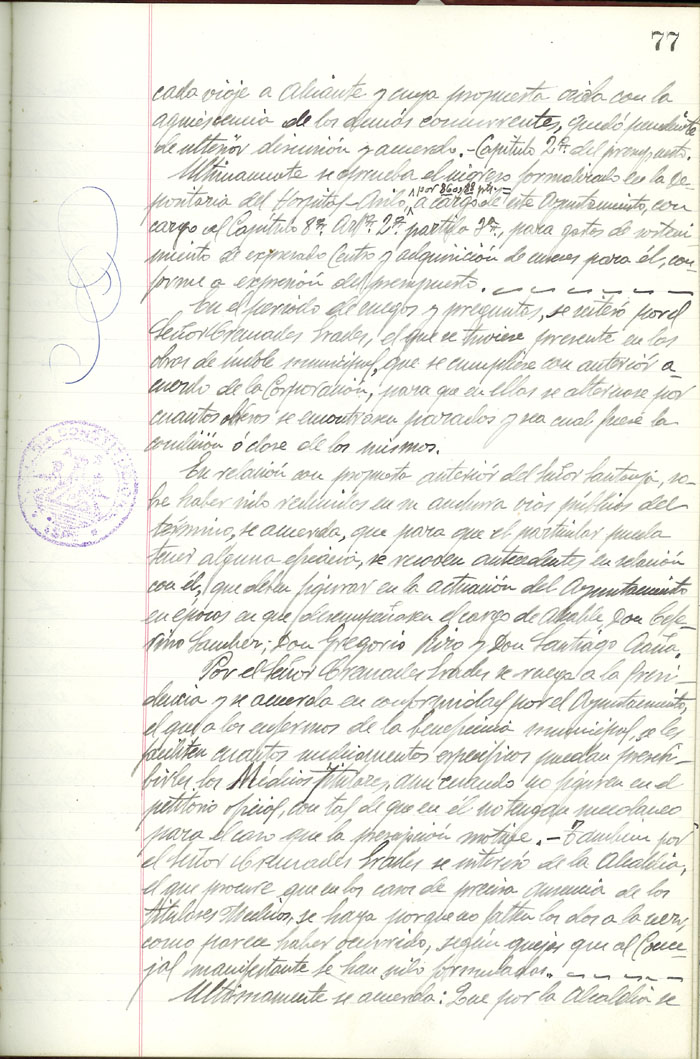 77
cada viaje a Alicante y cuya propuesta oida con la
aquiescencia de los demás concurrentes, quedó pendiente
de ulterior discusión y acuerdo.- Capítulo 2º. del presupuesto.
Ultimamente se aprueba el ingreso formalizado en la De
por ptas=
positaria del Hospital-Asilo, a cargo de este Ayuntamiento, con
cargo al Capítulo 8º. Artº. 2º. partida 3ª., para gastos de sosteni
miento de expresado Centro y adquisición de enseres para él, con
forme a expresión del presupuesto.
En el periodo de ruegos y preguntas, se reiteró por el
Señor Granados Irades, el que se tuviese presente en las
obras de indole municipal, que se cumpliese con anterior a-
cuerdo de la Corporación, para que en ellas se alternase por
cuantos obreros se encontrasen parados y sea cual fuese la
condición ó clase de los mismos.
En relación con propuesta anterior del Señor Santonja, so-
bre haber sido reducidos en su anchura vias públicas del
término, se acuerda, que para que el particular pueda
tener alguna eficacia, se recojan antecedentes en relación
con él, que deben figurar en la actuación del Ayuntamiento
en épocas en que desempeñaron el cargo de Alcalde Don Cefe-
rino Sanchez; Don Gregorio Rizo y Don Santiago
Por el Señor Granados Irades se ruega a la Presi-
dencia y se acuerda en conformidad por el Ayuntamiento,
el que a los enfermos de la beneficencia municipal, se les
faciliten cuantos medicamentos específicos puedan prescri-
birles los Médicos Titulares, aun cuando no figuren en el
petitorio oficial, con tal de que en él no tengan sucedaneo
para el caso que la prescripción motive.- Tambien por
el Señor Granados Irades se interesó de la Alcaldía,
el que procure que en los casos de precisa ausencia de los
titulares Médicos, se haga porque no falten los dos a la vez,
como parece haber ocurrido, según quejas que al Conce-
jal manifestante se han sido formuladas.
Ultimamente se acuerda: Que por la Alcaldía se